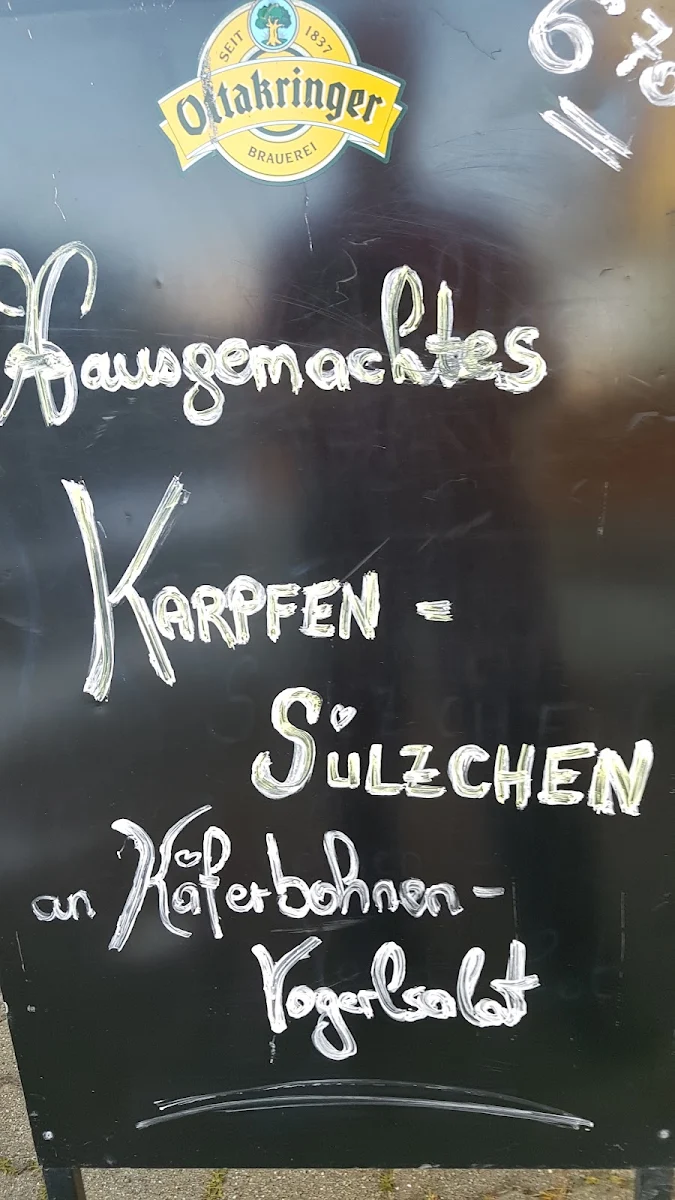 SEIT 1837
Ottakringer
BRAUEREI
6 70
Hausgemachtes
KARPFEN-
SÜLZCHEN
an Käferbohnen-
Vogerlsalat